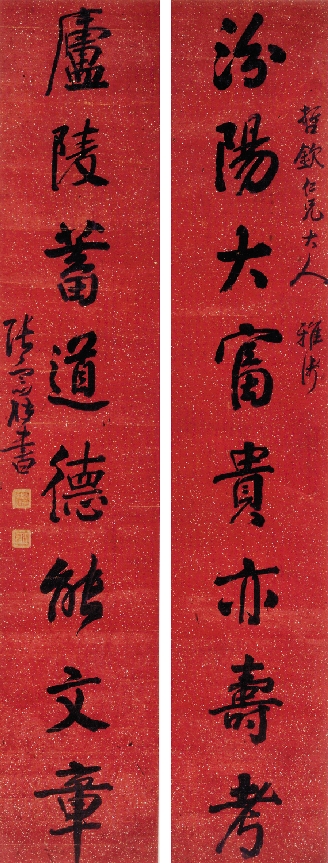 哲欽仁兄大人 雅
汾陽大富貴亦壽考
廬陵蓄道德能文章
張 書